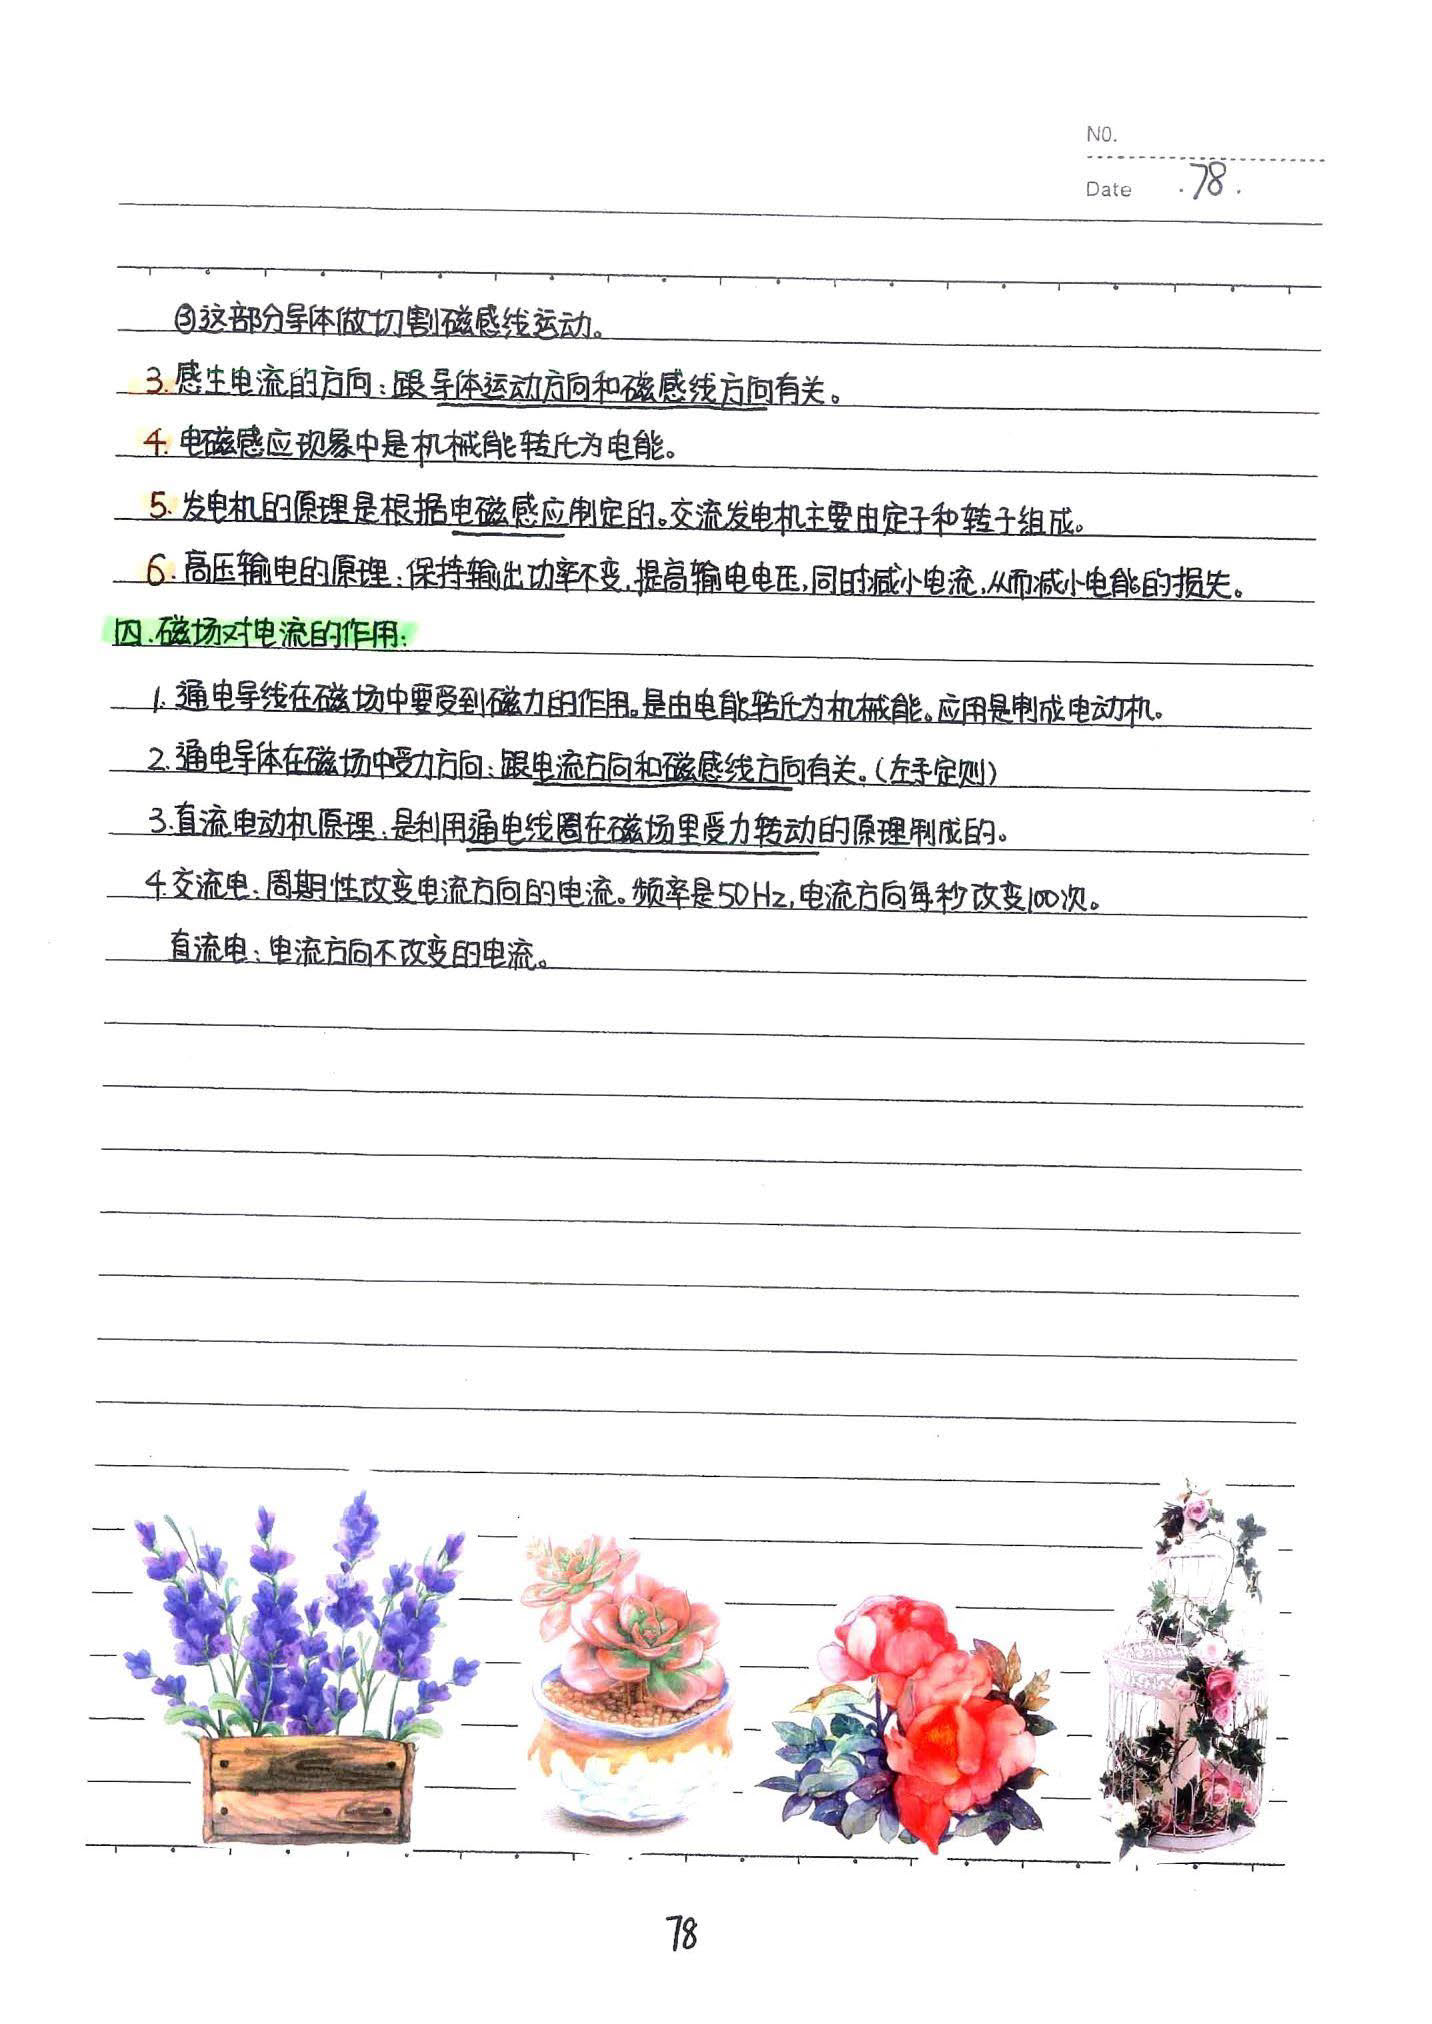 NO.
Date .78.
③这部分导体做切割磁感线运动。
3.感生电流的方向:跟导体运动方向和磁感线方向有关。
4.电磁感应现象中是机械能转化为电能。
5.发电机的原理是根据电磁感应制定的。交流发电机主要由定子和转子组成。
6.高压输电的原理:保持输出功率不变,提高输电电压,同时减小电流,从而减小电能的损失。
四.磁场对电流的作用:
1.通电导线在磁场中要受到磁力的作用。是由电能转化为机械能。应用是制成电动机。
2.通电导体在磁场中受力方向:跟电流方向和磁感线方向有关。(左手定则)
3.直流电动机原理:是利用通电线圈在磁场里受力转动的原理制成的。
4.交流电:周期性改变电流方向的电流。频率是50Hz,电流方向每秒改变100次。
直流电:电流方向不改变的电流。
78